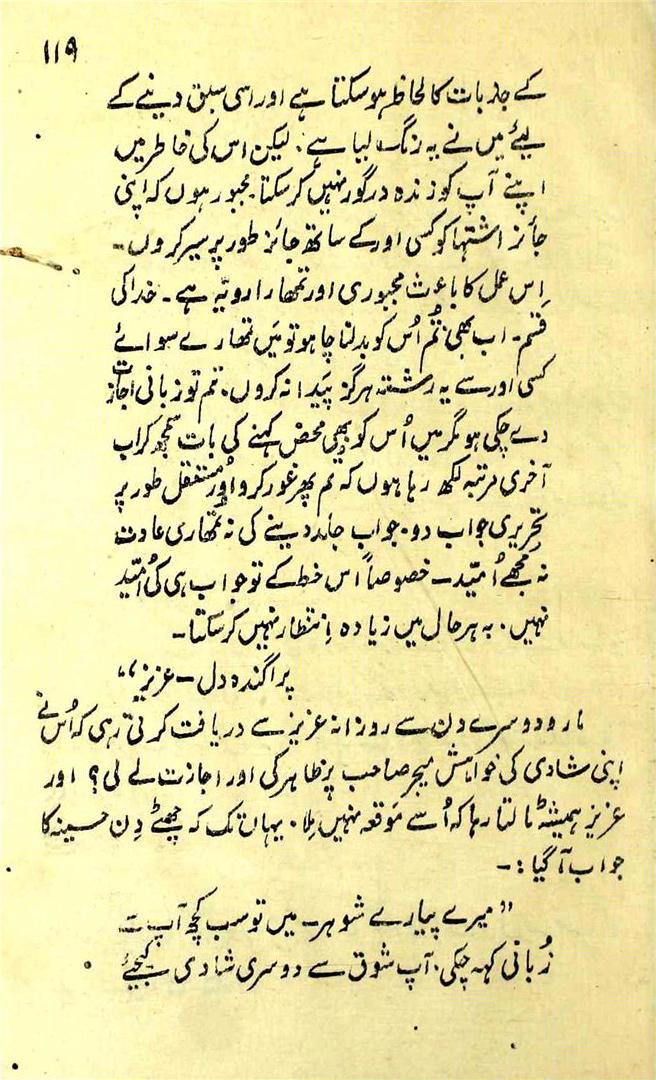 ۱۱۹
کے جذبات کا لحاظ ہو سکتا ہے اور اسی سبق دینے کے
لیئے میں نے یہ رنگ لیا ہے۔ لیکن اس کی خاطر میں
اپنے آپ کو زندہ درگور نہیں کر سکتا۔ مجبور ہوں کہ اپنی
جائز اشتہا کو کسی اور کے ساتھ جائز طور پر سیر کروں۔
اِس عمل کا باعث مجبوری اور تمھارا رویّہ ہے۔ خدا کی
قسم۔ اب بھی تُم اُس کو بدلنا چاہو تو میَں تمھارے سوائے
کسی اور سے یہ رشتہ ہرگز پیَدا نہ کروں۔ تم تو زبانی اجازت
دے چکی ہو مگر میں اُس کو بھی محض کہنے کی بات سمجھ کر اب
آخری مرتبہ لکھ رہا ہوں کہ تم پھر غور کرو اور مستقل طور پر
تحریری جواب دو۔ جواب جلد دینے کی نہ تمُھاری عادت
نہ مجھے اُمیّد۔ خصوصاً اس خط کے تو جواب ہی کی اُمیّد
نہیں۔ بہ ہر حال میں زیادہ اِنتظار نہیں کر سکتا۔
پراگندہ دل۔ عزیز“
مارو دوسرے دن سے روزانہ عزیز سے دریافت کرتی رہی کہ اُس نے
اپنی شادی کی خواہش میجر صاحب پر ظاہر کی اور اجازت لے لی؟ اور
عزیز ہمیشہ ٹالتا رہا کہ اُسے مَوقعہ نہیں مِلا۔ یہاں تک کہ چھٹے دِن حسینہ کا
جواب آ گیا:۔
”میرے پیارے شوہر۔ میں تو سب کچھ آپ سے
زُبانی کہہ چکی۔ آپ شوق سے دوسری شادی کیجیئے